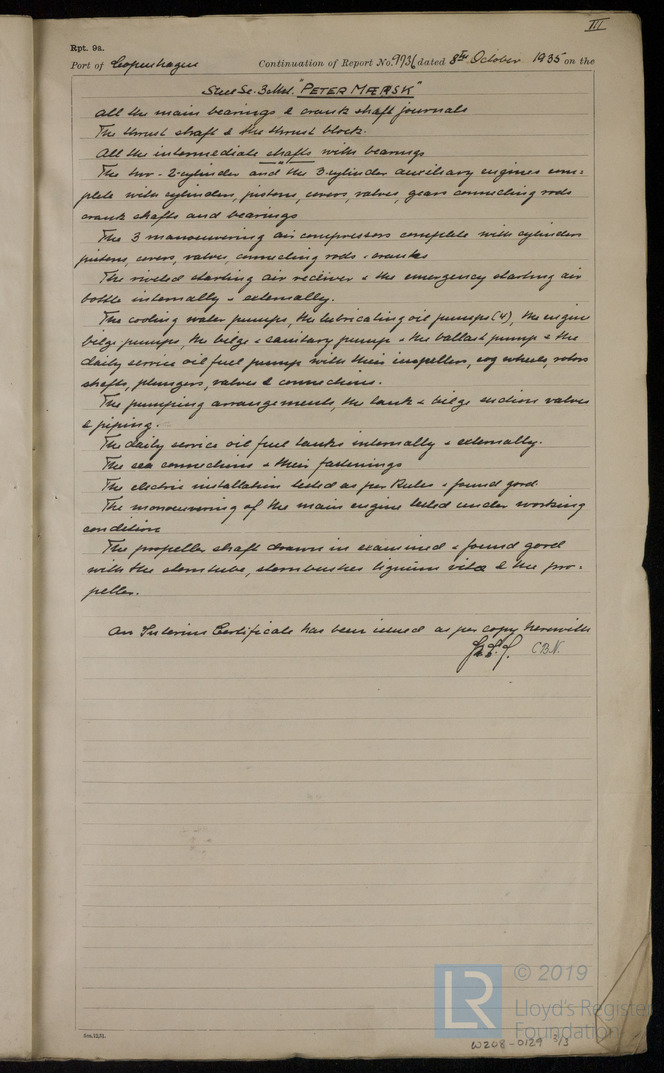 III
Rpt. 9a.
Port of Copenhagen Continuation of Report No. 9936 dated 8th October 1935 on the
Steel Sc. 3 Mst. "PETER MÆRSK"
All the main bearings & crank shaft journals
The thrust shaft & the thrust block.
All the intermediate shafts with bearings
The two - 2-cylinder and the 3-cylinder auxiliary engines com-
plete with cylinders, pistons, covers, valves, gears connecting rods
crank shafts and bearings
The 3 manoeuvering air compressors complete with cylinders
pistons, covers, valves, connecting rods & cranks
The riveted starting air receiver & the emergency starting air
bottle internally & externally.
The cooling water pumps, the lubricating oil pumps (4), the engine
bilge pumps, the bilge & sanitary pump & the ballast pump & the
daily service oil fuel pump with their impellers, cog wheels, rotors
shafts, plungers, valves & connections.
The pumping arrangements, the tank & bilge suction valves
& piping.
The daily service oil fuel tanks internally & externally.
The sea connections & their fastenings
The electric installation tested as per Rules & found good
The manoeuvering of the main engine tested under working
condition
The propeller shaft drawn in examined & found good
with the sterntube, sternbushes lignum vitæ & the pro-
peller.
An Interim Certificate has been issued as per copy herewith
C.B.N.
© 2019
LR
Lloyd's Register
Foundation
W208-0129 3/3